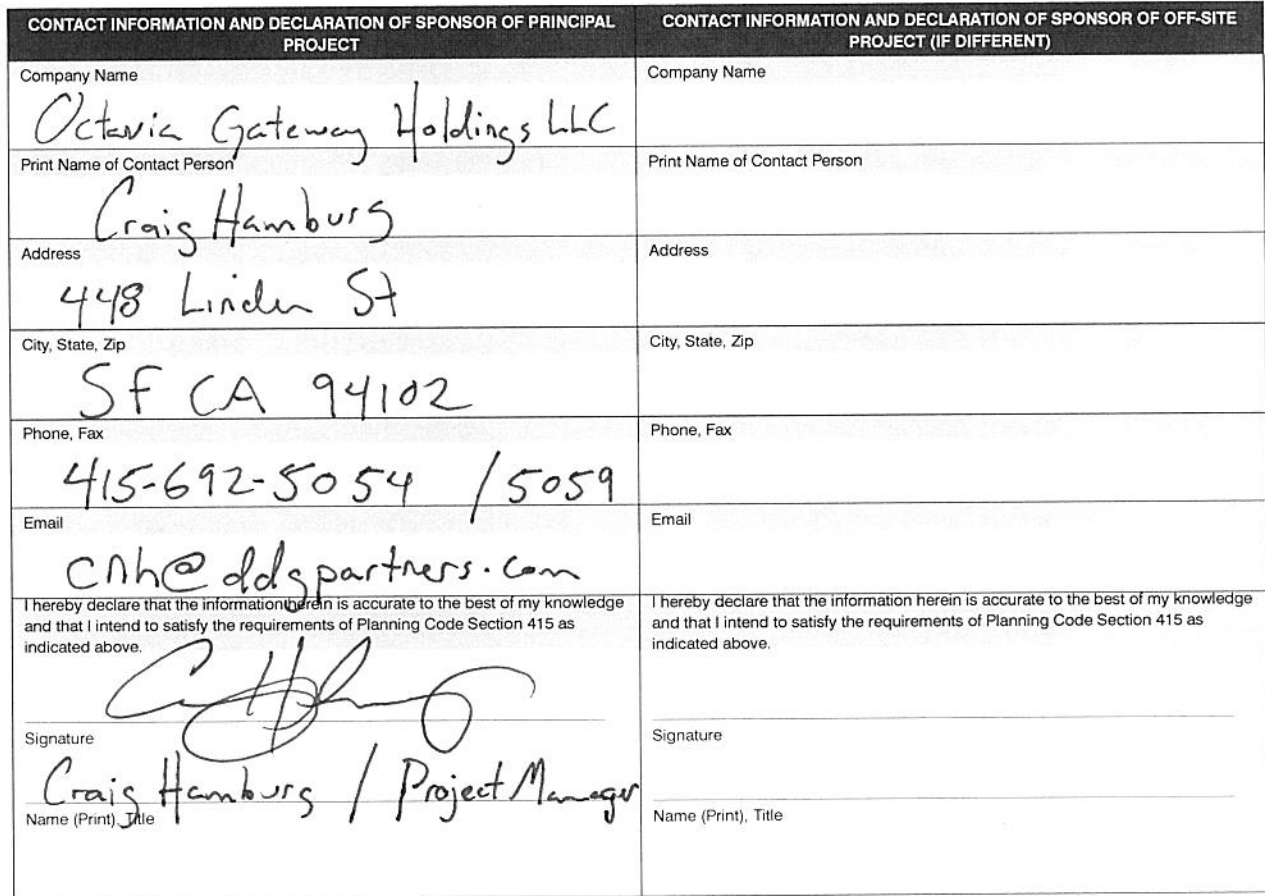 CONTACT INFORMATION AND DECLARATION OF SPONSOR OF PRINCIPAL
PROJECT
Company Name
Octavia Gateway Holdings LLC
Print Name of Contact Person
Craig Hamburg
Address
448 Linden St
City, State, Zip
SF CA 94102
Phone, Fax
415-692-5054 / 5059
Email
cnh@ddgpartners.com
I hereby declare that the information therein is accurate to the best of my knowledge
and that I intend to satisfy the requirements of Planning Code Section 415 as
indicated above.
Signature
Craig Hamburg / Project Manager
Name (Print), Title
CONTACT INFORMATION AND DECLARATION OF SPONSOR OF OFF-SITE
PROJECT (IF DIFFERENT)
Company Name
Print Name of Contact Person
Address
City, State, Zip
Phone, Fax
Email
I hereby declare that the information herein is accurate to the best of my knowledge
and that I intend to satisfy the requirements of Planning Code Section 415 as
indicated above.
Signature
Name (Print), Title